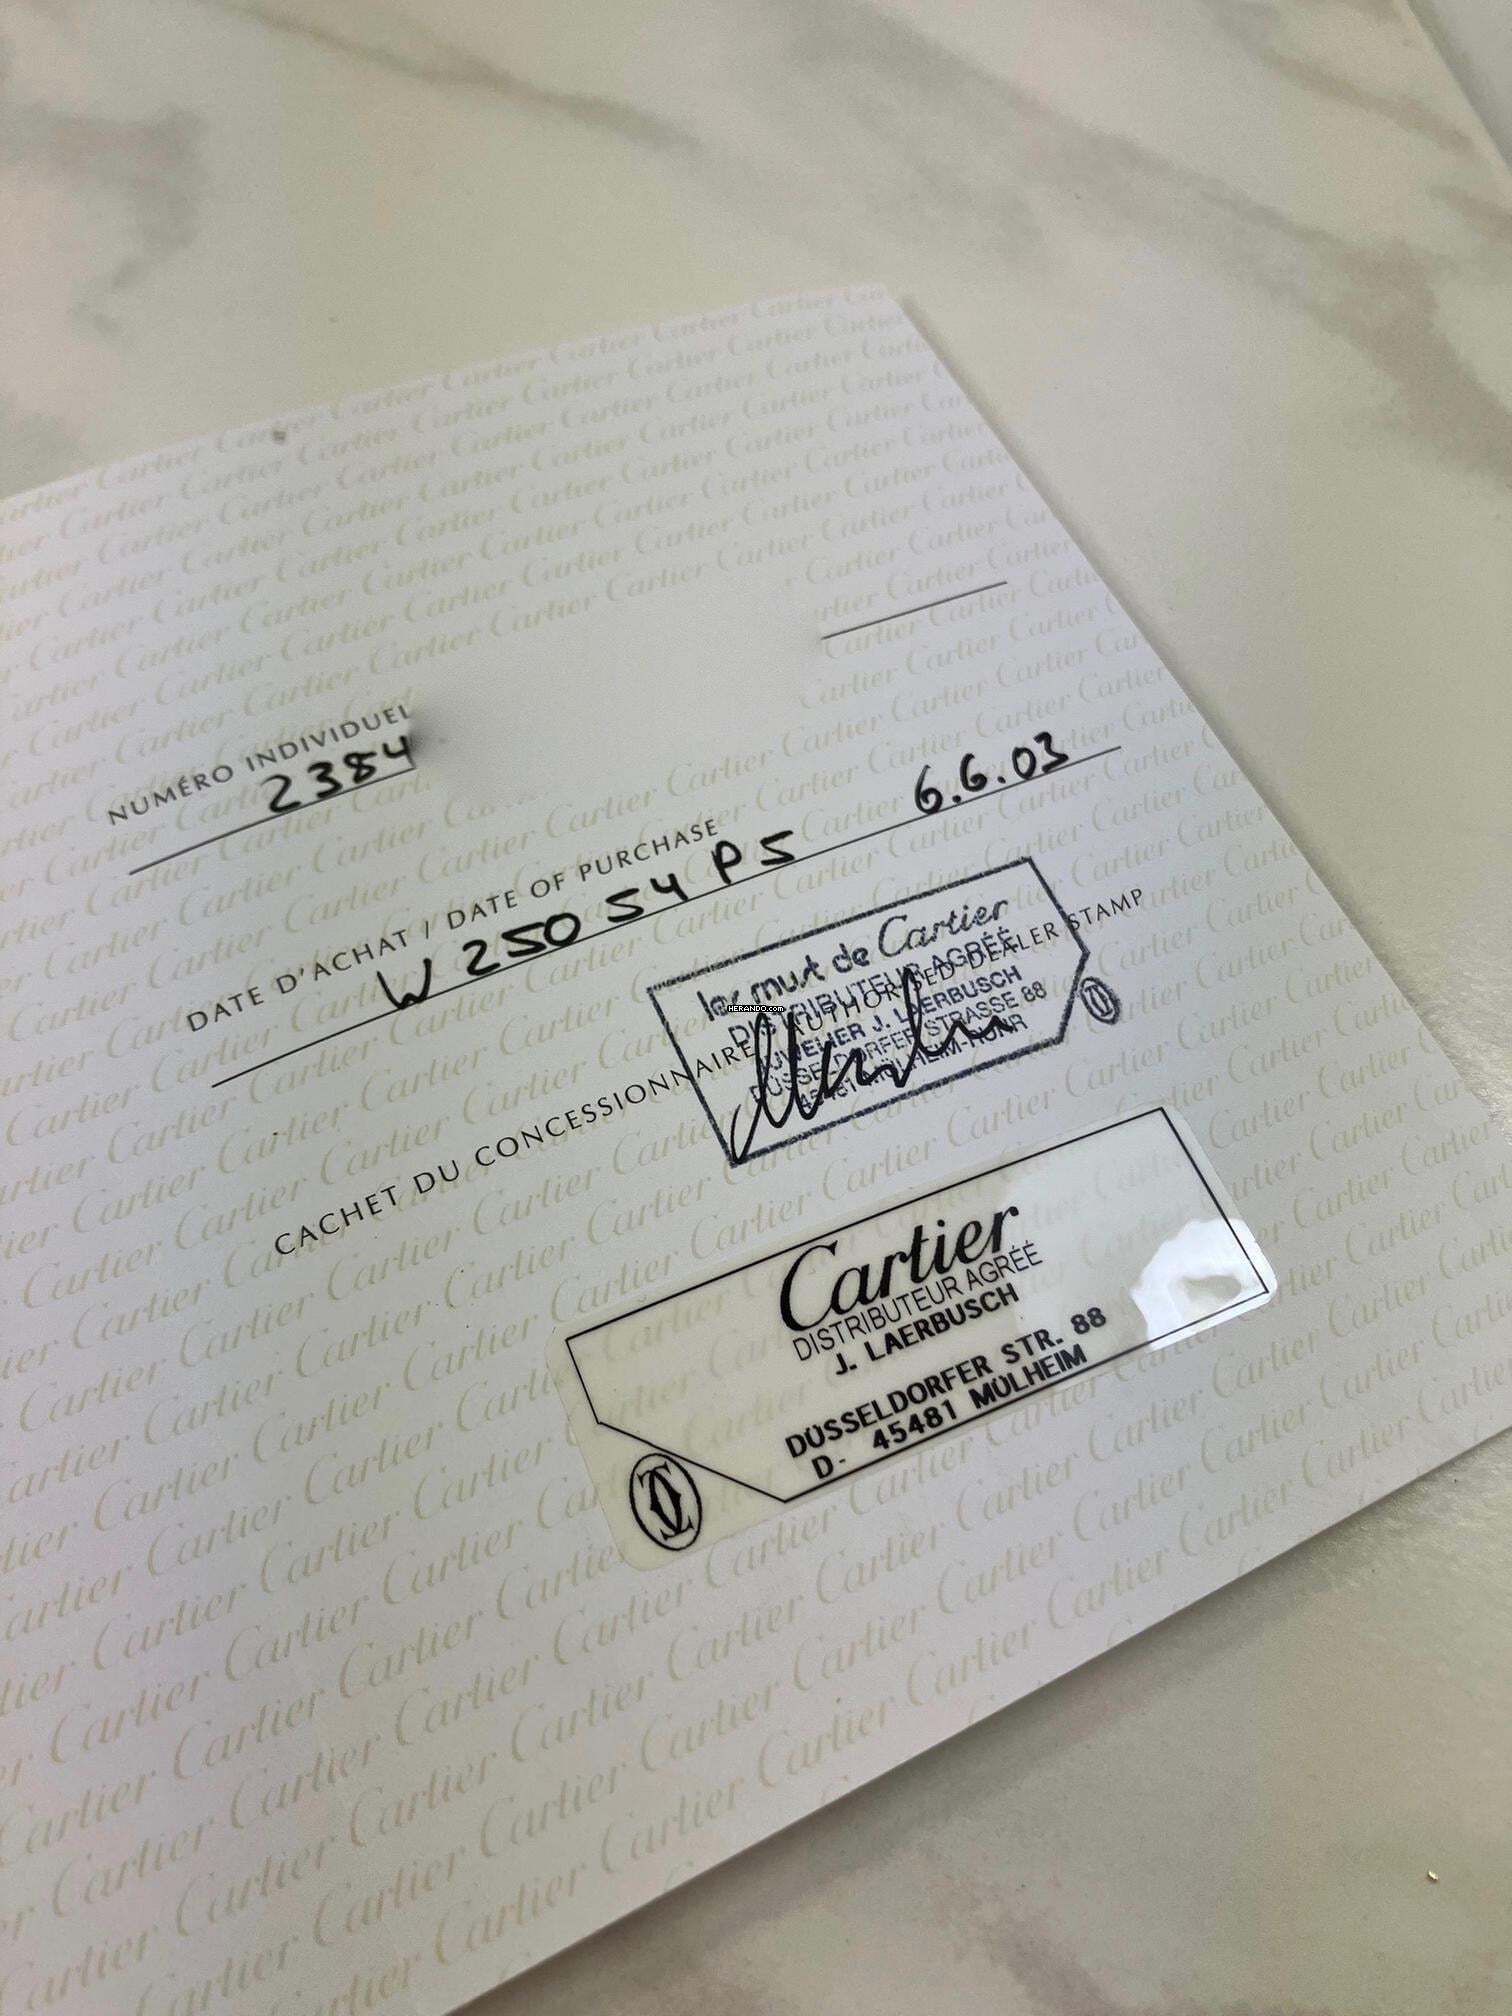 NUMÉRO INDIVIDUEL
2384
DATE D'ACHAT / DATE OF PURCHASE
W 250 54 P5 6.6.03
CACHET DU CONCESSIONNAIRE / AUTHORISED DEALER STAMP
les must de Cartier
DISTRIBUTEUR AGRÉÉ
JUWELIER J. LAERBUSCH
DÜSSELDORFER STRASSE 88
45481 MÜLHEIM-RUHR
HERANDO.com
Cartier
DISTRIBUTEUR AGRÉÉ
J. LAERBUSCH
DÜSSELDORFER STR. 88
D- 45481 MÜLHEIM